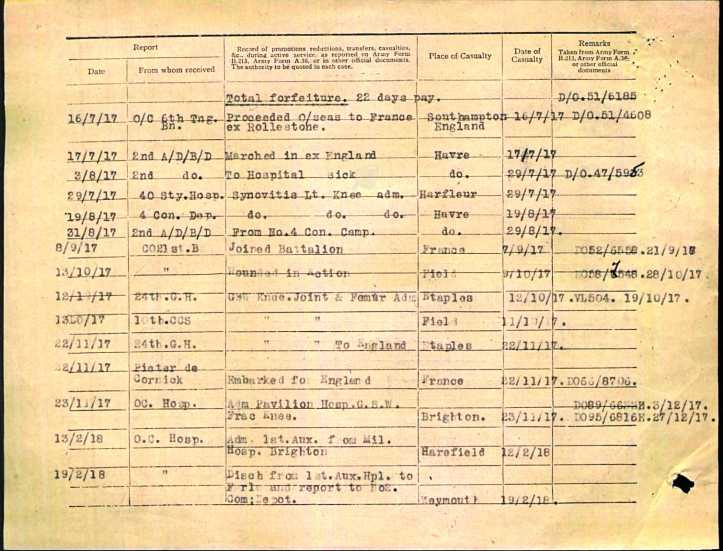 Report
Record of promotions reductions, transfers, casualties, &c., during active service, as reported on Army Form B.213, Army Form A.36, or in other official documents. The authority to be quoted in each case.
Place of Casualty
Date of Casualty
Remarks
Taken from Army Form B.213, Army Form A.36, or other official documents
Date
From whom received
Total forfeiture. 22 days pay. D/O.51/6185
16/7/17 O/C 6th Tng. Proceeded O/seas to France Southampton 16/7/17 D/O.51/4608
Bn. ex Rollestone. England
17/7/17 2nd A/D/B/D Marched in ex England Havre 17/7/17
3/8/17 2nd do. To Hospital sick do. 29/7/17 D/O.47/5953
29/7/17 40 Sty.Hosp. Synovitis Lt. Knee adm. Harfleur 29/7/17
19/8/17 4 Con. Dep. do. do. do. Havre 19/8/17
31/8/17 2nd A/D/B/D From No.4 Con. Camp. do. 29/8/17.
8/9/17 CO21st.B Joined Battalion France 7/9/17 DO52/6558.21/9/17
13/10/17 " Wounded in action Field 9/10/17 .28/10/17.
24th.G.H. GSW Knee.Joint & Femur Adm Etaples 12/10/17.VL504. 19/10/17.
10th.CCS " " Field 11/10/17.
22/11/17 24th.G.H. " " To England Etaples 22/11/17.
22/11/17 Pieter de
Cornick Embarked for England France 22/11/17.DO66/8706.
23/11/17 OC. Hosp. Adm Pavilion Hosp.G.S.W. .3/12/17.
Frac Knee. Brighton. 23/11/17. DO95/6816E.27/12/17.
13/2/18 O.C. Hosp. Adm. 1st.Aux. from Mil.
Hosp. Brighton Harefield 12/2/18
19/2/18 " Disch from 1st.Aux.Hpl. to
Furlo and report to No2.
Com;Depot. Weymouth 19/2/18.